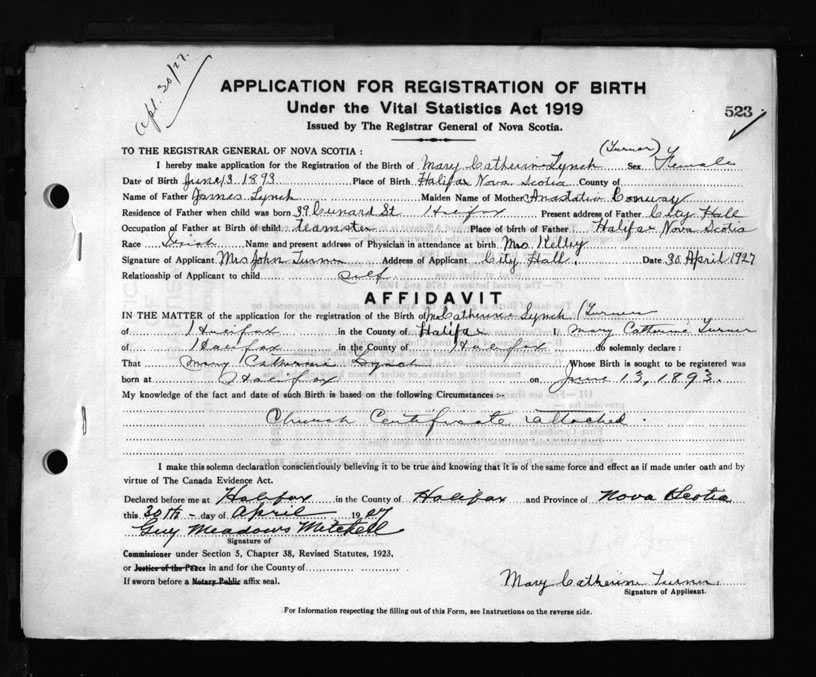 Apl. 30/27.
APPLICATION FOR REGISTRATION OF BIRTH
Under the Vital Statistics Act 1919
523
Issued by The Registrar General of Nova Scotia.
TO THE REGISTRAR GENERAL OF NOVA SCOTIA :
(Turner)
I hereby make application for the Registration of the Birth of Mary Catherine Lynch Sex Female
Date of Birth June 13 1893 Place of Birth Halifax Nova Scotia County of
Name of Father James Lynch Maiden Name of Mother Anastatia Conway
Residence of Father when child was born 39 Cunard St Halifax Present address of Father City Hall
Occupation of Father at Birth of child teamster Place of birth of Father Halifax Nova Scotia
Race Irish Name and present address of Physician in attendance at birth Mrs Kelley
Signature of Applicant Mrs John Turner Address of Applicant City Hall. Date 30 April 1927
Relationship of Applicant to child self
AFFIDAVIT
IN THE MATTER of the application for the registration of the Birth of M Catherine Lynch (Turner
of Halifax in the County of Halifax I, Mary Catherine Turner
of Halifax in the County of Halifax do solemnly declare :
That Mary Catherine Lynch Whose Birth is sought to be registered was
born at Halifax on June 13, 1893.
My knowledge of the fact and date of such Birth is based on the following Circumstances :-
Church Certificate attached.
I make this solemn declaration conscientiously believing it to be true and knowing that it is of the same force and effect as if made under oath and by
virtue of The Canada Evidence Act.
Declared before me at Halifax in the County of Halifax and Province of Nova Scotia
this 30th - day of April 1927
Guy Meadows Mitchell
Signature of
Commissioner under Section 5, Chapter 38, Revised Statutes, 1923,
or Justice of the Peace in and for the County of
If sworn before a Notary Public affix seal.
Mary Catherine Turner
Signature of Applicant.
For Information respecting the filling out of this Form, see Instructions on the reverse side.